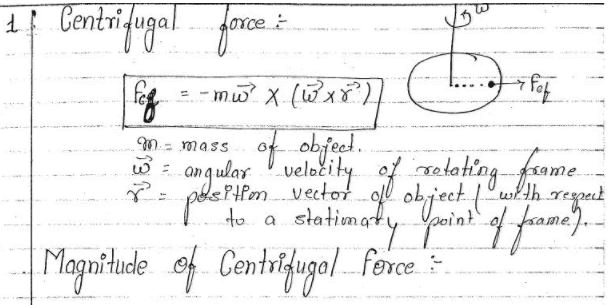 1. Centrifugal force :-
ω
F⃗cf = -mω⃗ × (ω⃗ × r⃗)
Fcf
m = mass of object.
ω⃗ = angular velocity of rotating frame
r⃗ = position vector of object (with respect
to a stationary point of frame).
Magnitude of Centrifugal Force :-